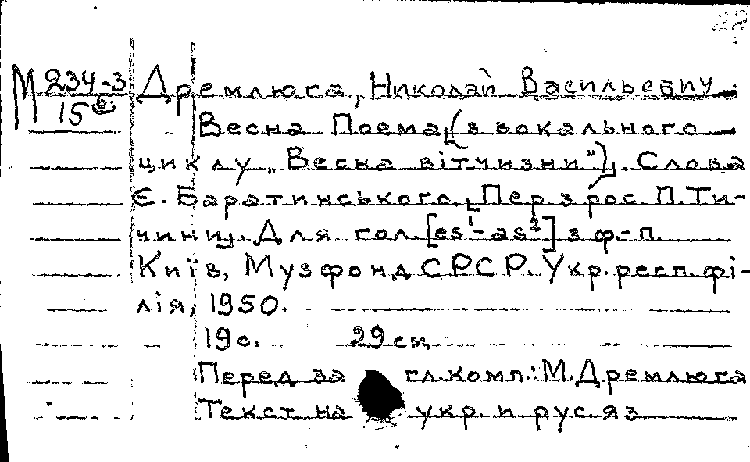 22
М 234-3 Дремлюга, Николай Васильевич.
15 Весна Поема (з вокального
циклу „Весна вітчизни"). Слова
Є. Баратинського. Пер. з рос. П. Ти-
чини. Для гол. [es¹-as²] з ф.-п.
Київ, Музфонд СРСР. Укр. респ. фі-
лія, 1950.
19 с. 29 см.
Перед загл. комп.: М. Дремлюга
Текст на укр. и рус. яз.